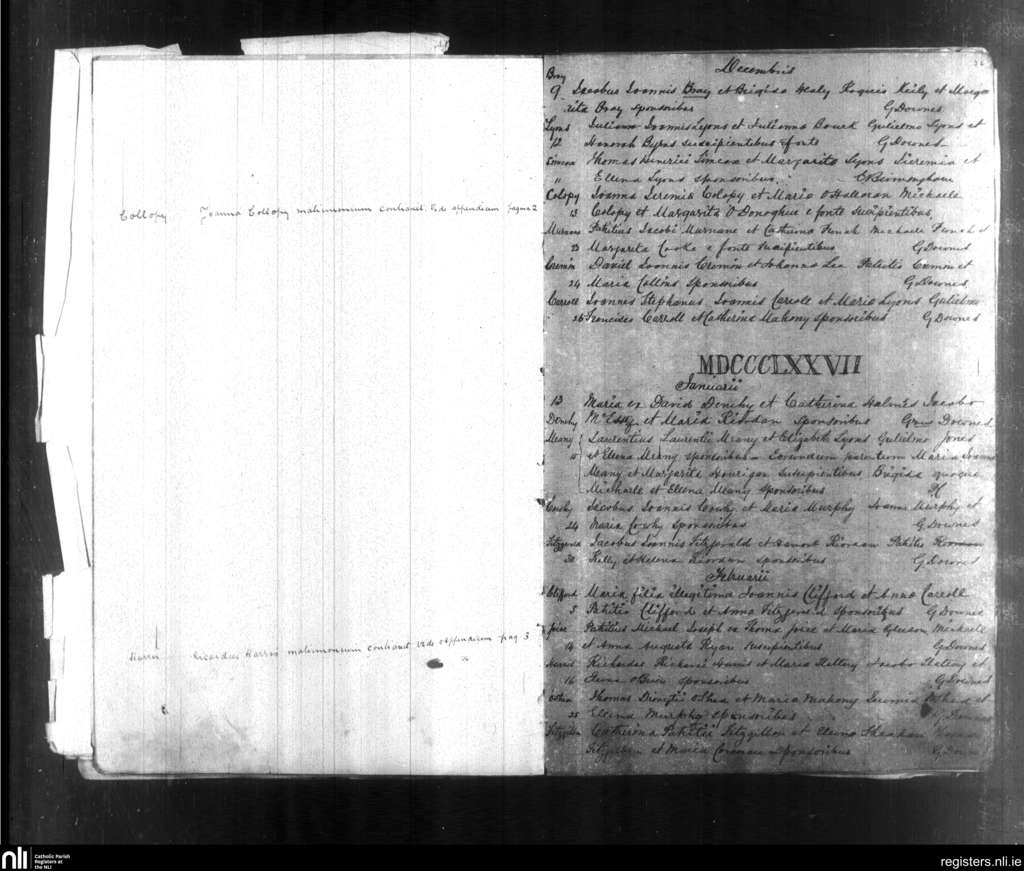 Collopy Joanna Collopy matrimonium contraxit. Vide appendicem pagina 2
Harris Ricardus Harris matrimonium contraxit vide appendicem pag 3
Decembris
Bray
9 Jacobus Joannis Bray et Brigida Healy Kiely et Marga
rita Bray sponsoribus G Downes
Lyons Juliana Joannis Lyons et Julianna Bourk Gulielmo Lyons et
12 Honorah Byrns suscipientibus e fonte G Downes
Thomas et Margarita Lyons Jeremia et
11 Ellena Lyons sponsoribus.
Colopy Joanna Jeremia Colopy et Maria O'Halloran Michaele
13 Colopy et Margarita O'Donoghue e fonte suscipientibus,
Murnane Patritius Jacobi Murnane et Catherina Michaele
23 Margarita Cooke e fonte suscipientibus G Downes
Cremin David Joannis Cremin et Johanna Lea Patritio et
24 Maria Collins sponsoribus G Downes
Carroll Joannes Stephanus Joannis Carroll et Maria Lyons Gulielmo
26 Francisco Carroll et Catherina Mahony sponsoribus G Downes
MDCCCLXXVII
Januarii
13 Maria ex David Denehy et Catherina Jacobo
Denehy et Maria Riordan sponsoribus Downes
Meany Laurentius Laurentii Meany et Elizabeth Lyons Gulielmo Jones
15 et Ellena Meany sponsoribus – Eorumdem parentum Maria Joanne
Meany et Margarita Hourigan suscipientibus Brigida quoque
Michaele et Ellena Meany sponsoribus
Jacobus Joannis et Maria Murphy Joanne Murphy et
24 Maria sponsoribus G Downes
Fitzgerald Jacobus Joannis Fitzgerald et Honora Riordan Patritio
30 Kelly et Helena Riordan sponsoribus G Downes
Februarii
Clifford Maria filia illegitima Joannis Clifford et Anna Carroll
5 Patritio Clifford et Anna Fitzgerald sponsoribus G Downes
Joice Patritius Michael Joseph ex Thoma Joice et Maria Gleeson Michaele
14 et Anna Augusta Ryan suscipientibus G Downes
Harris Richardus Richardi Harris et Maria Slattery Jacobo Slattery et
16 O'Brien sponsoribus G Downes
O'Shea Thomas Dionysii O'Shea et Maria Mahony Jeremia O'Shea et
25 Ellena Murphy sponsoribus
Fitzgibbon Catherina Patritii Fitzgibbon et Ellena Sheahan
Fitzgibbon et Maria sponsoribus G Downes
nli Catholic Parish
Registers at
the NLI
registers.nli.ie